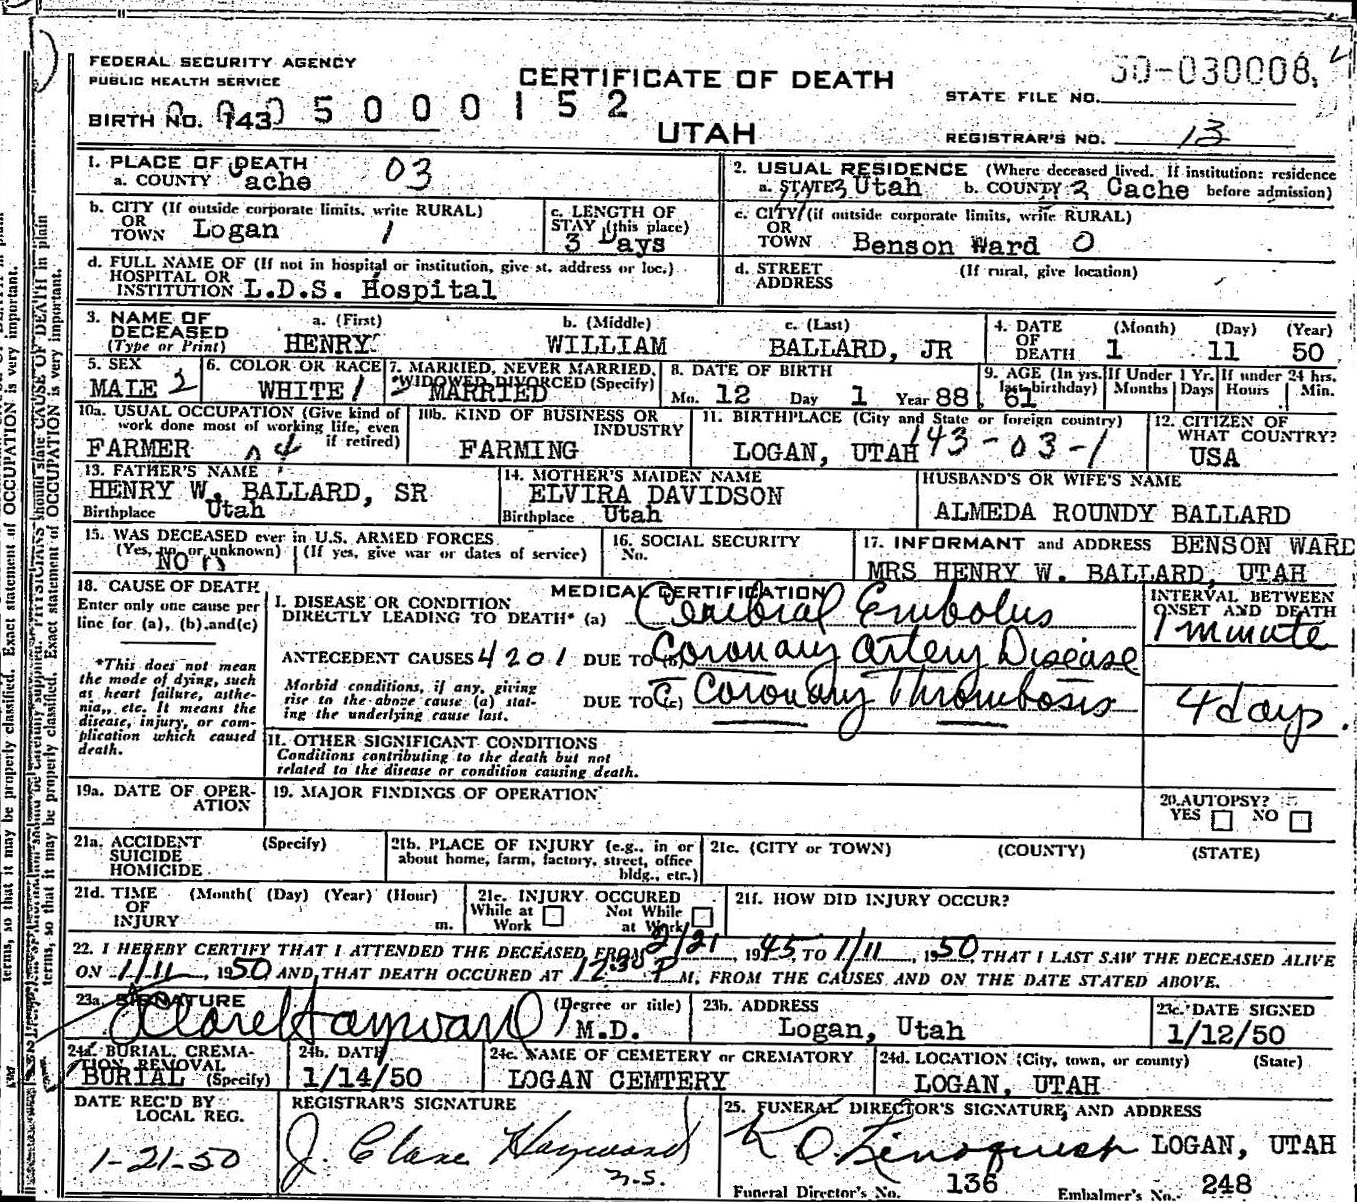 FEDERAL SECURITY AGENCY
PUBLIC HEALTH SERVICE
CERTIFICATE OF DEATH
UTAH
50-030008
STATE FILE NO.
BIRTH NO. 143 05000152
REGISTRAR'S NO. 13
1. PLACE OF DEATH
a. COUNTY Cache 03
2. USUAL RESIDENCE (Where deceased lived. If institution: residence
a. STATE 3 Utah b. COUNTY 3 Cache before admission)
b. CITY (If outside corporate limits, write RURAL)
OR
TOWN Logan 1
c. LENGTH OF
STAY (this place)
3 Days
c. CITY (if outside corporate limits, write RURAL)
OR
TOWN Benson Ward 0
d. FULL NAME OF (If not in hospital or institution, give st. address or loc.)
HOSPITAL OR
INSTITUTION L.D.S. Hospital
d. STREET (If rural, give location)
ADDRESS
3. NAME OF
DECEASED
(Type or Print)
a. (First) b. (Middle) c. (Last)
HENRY WILLIAM BALLARD, JR
4. DATE (Month) (Day) (Year)
OF
DEATH 1 11 50
5. SEX
MALE 2
6. COLOR OR RACE
WHITE 1
7. MARRIED, NEVER MARRIED,
WIDOWED DIVORCED (Specify)
MARRIED
8. DATE OF BIRTH
Mo. 12 Day 1 Year 88
9. AGE (In yrs. last birthday) 61
If Under 1 Yr. Months Days
If under 24 hrs. Hours Min.
10a. USUAL OCCUPATION (Give kind of
work done most of working life, even
if retired)
FARMER 4
10b. KIND OF BUSINESS OR
INDUSTRY
FARMING
11. BIRTHPLACE (City and State or foreign country)
LOGAN, UTAH 143-03-1
12. CITIZEN OF
WHAT COUNTRY?
USA
13. FATHER'S NAME
HENRY W. BALLARD, SR
Birthplace Utah
14. MOTHER'S MAIDEN NAME
ELVIRA DAVIDSON
Birthplace Utah
HUSBAND'S OR WIFE'S NAME
ALMEDA ROUNDY BALLARD
15. WAS DECEASED ever in U.S. ARMED FORCES
(Yes, no or unknown) (If yes, give war or dates of service)
NO
16. SOCIAL SECURITY
No.
17. INFORMANT and ADDRESS BENSON WARD
MRS HENRY W. BALLARD, UTAH
18. CAUSE OF DEATH
Enter only one cause per
line for (a), (b), and(c)
*This does not mean
the mode of dying, such
as heart failure, asthe-
nia, etc. It means the
disease, injury, or com-
plication which caused
death.
MEDICAL CERTIFICATION
I. DISEASE OR CONDITION
DIRECTLY LEADING TO DEATH* (a) Cerebral Embolus
ANTECEDENT CAUSES 4201 DUE TO (b) Coronary Artery Disease
Morbid conditions, if any, giving
rise to the above cause (a) stat-
ing the underlying cause last.
DUE TO (c) Coronary Thrombosis
INTERVAL BETWEEN
ONSET AND DEATH
1 minute
4 days
II. OTHER SIGNIFICANT CONDITIONS
Conditions contributing to the death but not
related to the disease or condition causing death.
19a. DATE OF OPER-
ATION
19. MAJOR FINDINGS OF OPERATION
20. AUTOPSY?
YES NO
21a. ACCIDENT (Specify)
SUICIDE
HOMICIDE
21b. PLACE OF INJURY (e.g., in or
about home, farm, factory, street, office
bldg., etc.)
21c. (CITY or TOWN) (COUNTY) (STATE)
21d. TIME (Month( (Day) (Year) (Hour)
OF
INJURY m.
21e. INJURY OCCURED
While at Work Not While at Work
21f. HOW DID INJURY OCCUR?
22. I HEREBY CERTIFY THAT I ATTENDED THE DECEASED FROM 2/21, 1945 TO 1/11, 1950 THAT I LAST SAW THE DECEASED ALIVE
ON 1/11, 1950 AND THAT DEATH OCCURED AT 12:30 P M. FROM THE CAUSES AND ON THE DATE STATED ABOVE.
23a. SIGNATURE (Degree or title)
J Clare Hayward M.D.
23b. ADDRESS
Logan, Utah
23c. DATE SIGNED
1/12/50
24a. BURIAL, CREMA-
TION REMOVAL
BURIAL (Specify)
24b. DATE
1/14/50
24c. NAME OF CEMETERY or CREMATORY
LOGAN CEMTERY
24d. LOCATION (City, town, or county) (State)
LOGAN, UTAH
DATE REC'D BY
LOCAL REG.
1-21-50
REGISTRAR'S SIGNATURE
J. Clare Hayward
n.s.
25. FUNERAL DIRECTOR'S SIGNATURE AND ADDRESS
LOGAN, UTAH
Funeral Director's No. 136 Embalmer's No. 248
terms, so that it may be properly classified. Exact statement of OCCUPATION is very important.